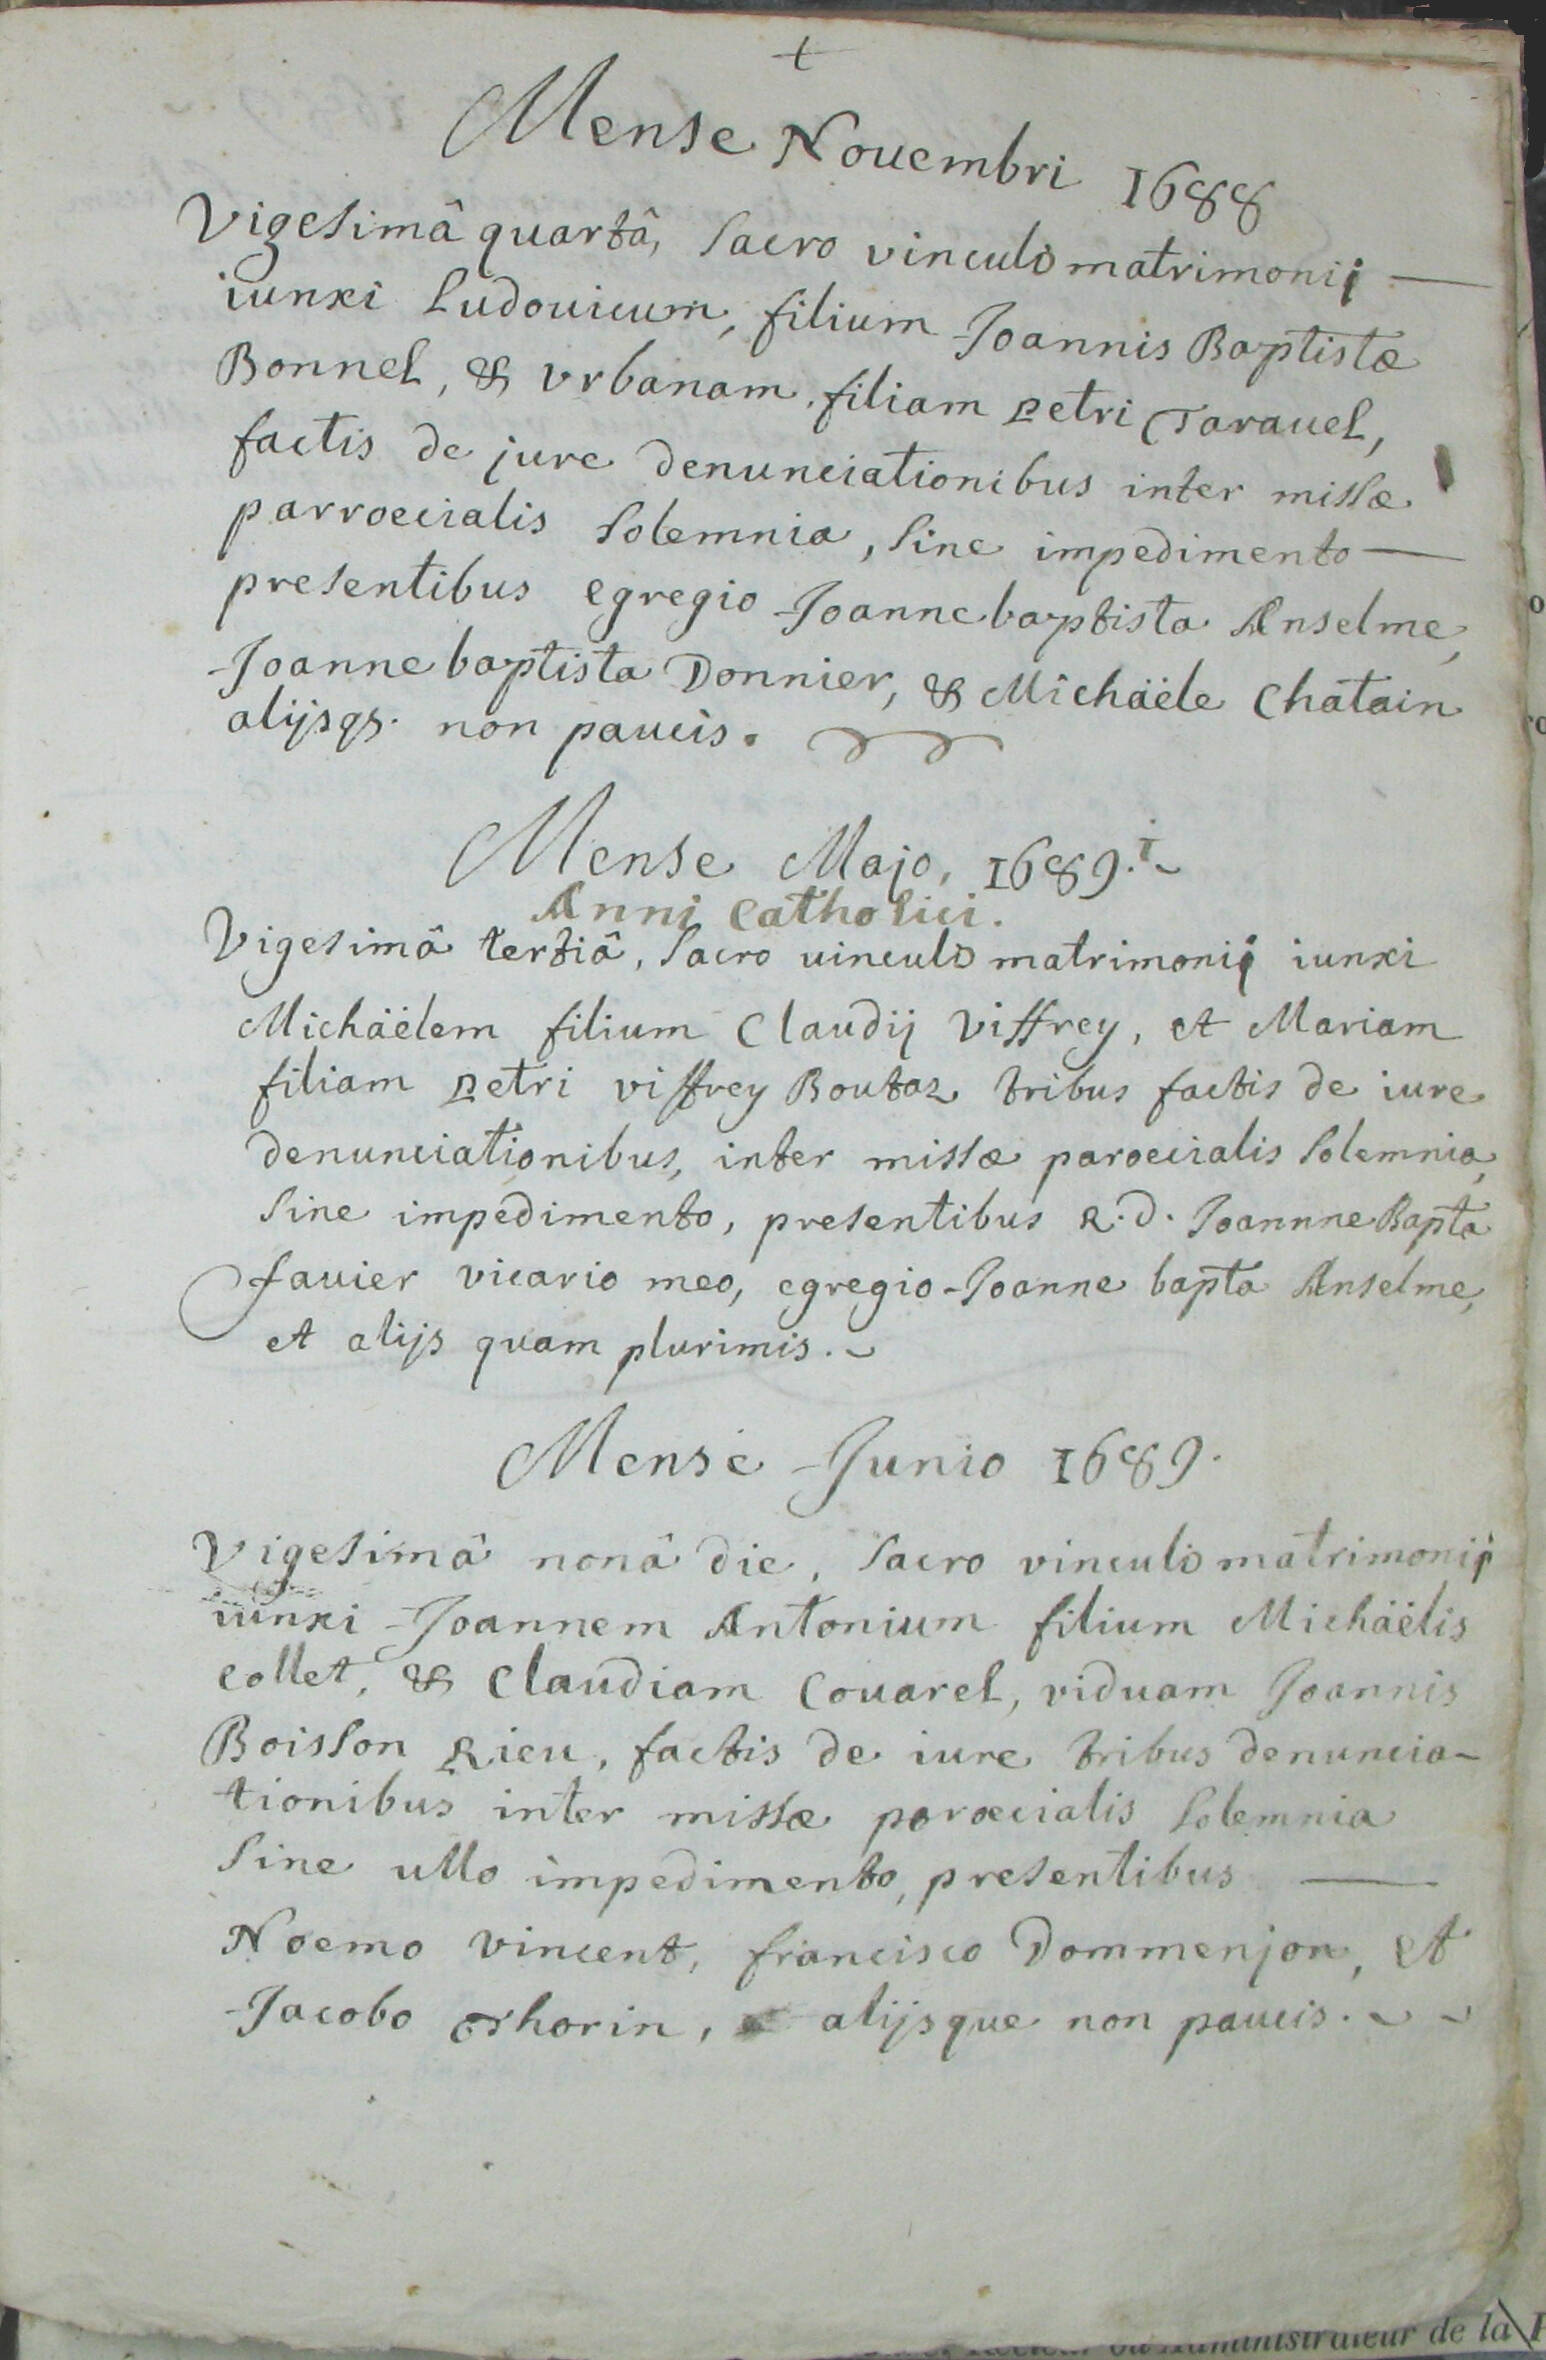 +
Mense Nouembri 1688
Vigesimâ quartâ, sacro vinculo matrimonij
iunxi Ludouicum, filium Joannis Baptistæ
Bonnel, & vrbanam filiam Petri Tarauel,
factis de jure denunciationibus inter missæ
parroecialis solemnia, sine impedimento
presentibus egregio Joanne baptista Anselme,
Joanne baptista Donnier, & Michäele Chatain
alijsqs. non paucis.
Mense Majo, 1689. i
Anni Catholici.
Vigesimâ tertiâ, sacro uinculo matrimonij iunxi
Michäëlem filium Claudij Viffrey, et Mariam
filiam Petri viffrey Boutaz tribus factis de iure
denunciationibus, inter missæ paroecialis solemnia,
sine impedimento, presentibus R. d. Joannne Bapta
favier vicario meo, egregio Joanne bapta Anselme,
et alijs quam plurimis.
Mense Junio 1689.
Vigesimâ nonâ die, sacro vinculo matrimonij
iunxi Joannem Antonium filium Michäëlis
Collet, & Claudiam Couarel, viduam Joannis
Boisson Rieu, factis de iure tribus denuncia-
tionibus inter missæ paroecialis solemnia
sine ullo impedimento, presentibus
Noemo vincent, francisco Dommenjon, et
Jacobo Thorin, alijsque non paucis.
de la